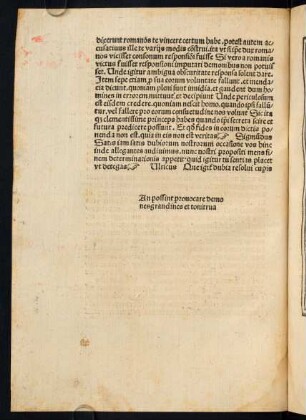 dicerunt romanos te vincere certum habe. potest autem ac
cusativus ille te varijs modis construi. ita vt siue dux roma
nos vicisset consonum responsioni fuisset Si vero a romanis
victus fuisset responsioni imputari demonibus non potuis
set. Unde igitur ambigua obscuritate responsa solent dare.
Item sepe etiam pro sua eorum voluntate fallunt. et menda
cia dicunt. quoniam pleni sunt inuidia. et gaudent dum ho
mines in errorem mittunt et decipiunt Unde periculosum
est eisdem credere. quoniam nescit homo. quando ipsi fallun
tur. vel fallere pro eorum consuetudine non volunt Sic ita
que clementissime princeps habes quando ipsi secreta scire et
futura predicere possunt. Et quod fides in eorum dictis po
nenda non est. quia in eis non est veritas Sigmundus
Satis iam sana dubiorum nostrorum occasione vos hinc
inde allegantes audiuimus. nunc nostri propositi mens fi
nem determinationis appetit. quid igitur tu sentias placet
vt detegas Ulricus Que igitur dubia resolui cupis
An possint prouocare demo
nes grandines et tonitrua